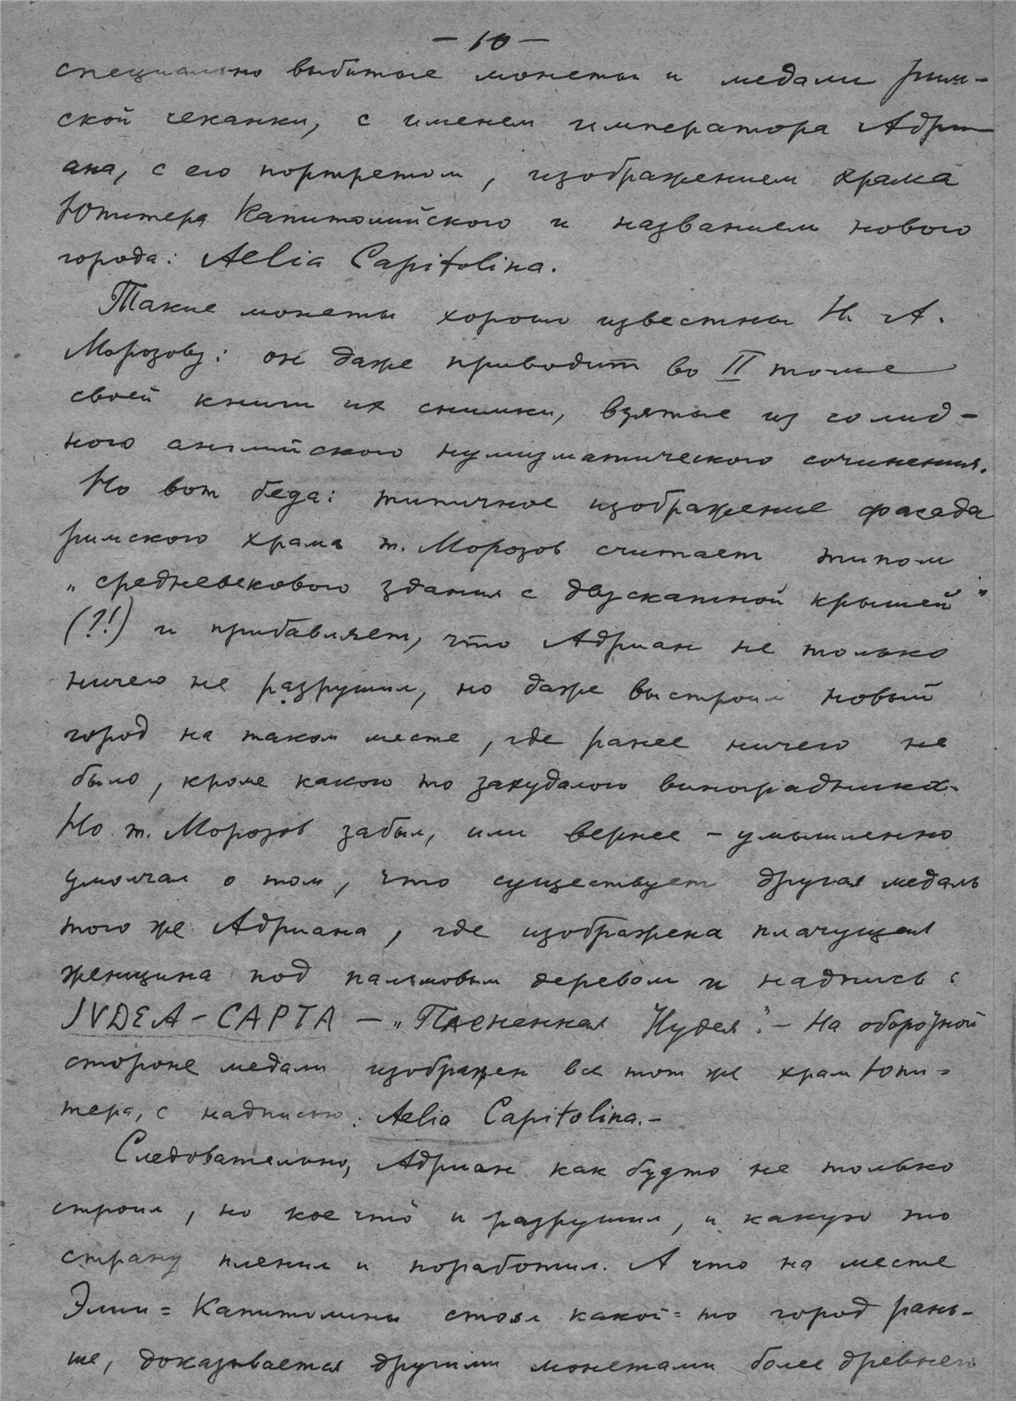 — 10 —
специально выбитые монеты и медали рим-
ской чеканки, с именем императора Адри-
ана, с его портретом, изображением храма
Юпитера Капитолийского и названием нового
города: Aelia Capitolina.
Такие монеты хорошо известны Н. А.
Морозову: он даже приводит во II томе
своей книги их снимки, взятые из солид-
ного английского нумизматического сочинения.
Но вот беда: типичное изображение фасада
римского храма т. Морозов считает типом
„средневекового здания с двускатной крышей"
(?!) и прибавляет, что Адриан не только
ничего не разрушил, но даже выстроил новый
город на таком месте, где ранее ничего не
было, кроме какого то захудалого виноградника.
Но т. Морозов забыл, или вернее – умышленно
умолчал о том, что существует другая медаль
того же Адриана, где изображена плачущая
женщина под пальмовым деревом и надпись:
JVDEA – CAPTA – „Плененная Иудея". – На оборотной
стороне медали изображен все тот же храм Юпи-
тера, с надписью: Aelia Capitolina. –
Следовательно, Адриан как будто не только
строил, но кое что и разрушил, и какую то
страну пленил и поработил. А что на месте
Элии = Капитолины стоял какой = то город рань-
ше, доказывается другими монетами более древнего